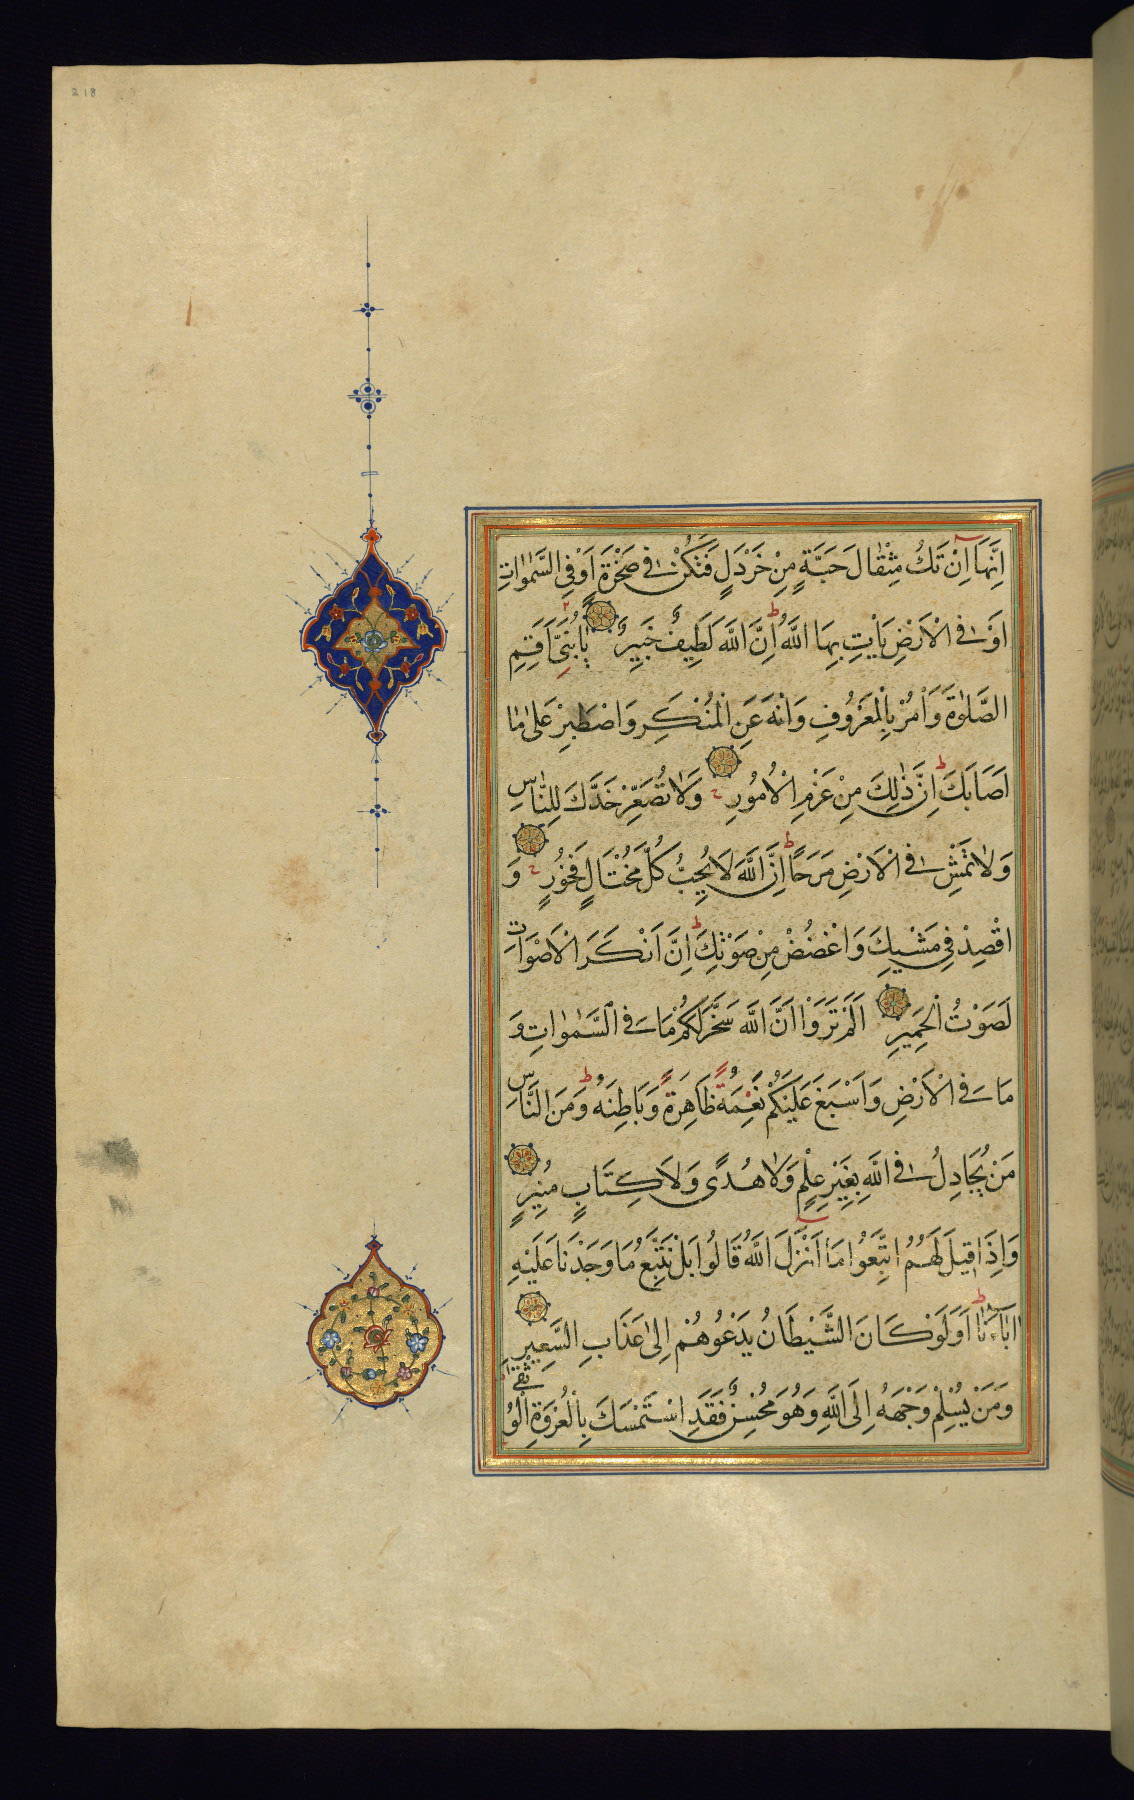 218
اِنَّهَا اِنْ تَكُ مِثْقَالَ حَبَّةٍ مِنْ خَرْدَلٍ فَتَكُنْ فِى صَخْرَةٍ اَوْ فِى السَّمٰوَاتِ
اَوْ فِى الْاَرْضِ يَأْتِ بِهَا اللّٰهُ ط اِنَّ اللّٰهَ لَطِيفٌ خَبِيرٌ يَا بُنَىَّ اَقِمِ
الصَّلٰوةَ وَأْمُرْ بِالْمَعْرُوفِ وَانْهَ عَنِ الْمُنْكَرِ وَاصْطَبِرْ عَلٰى مَا
اَصَابَكَ ط اِنَّ ذٰلِكَ مِنْ عَزْمِ الْاُمُورِ وَلَا تُصَعِّرْ خَدَّكَ لِلنَّاسِ
وَلَا تَمْشِ فِى الْاَرْضِ مَرَحًا ط اِنَّ اللّٰهَ لَا يُحِبُّ كُلَّ مُخْتَالٍ فَخُورٍ وَ
اقْصِدْ فِى مَشْيِكَ وَاغْضُضْ مِنْ صَوْتِكَ ط اِنَّ اَنْكَرَ الْاَصْوَاتِ
لَصَوْتُ الْحَمِيرِ اَلَمْ تَرَوْا اَنَّ اللّٰهَ سَخَّرَ لَكُمْ مَا فِى السَّمٰوَاتِ وَ
مَا فِى الْاَرْضِ وَاَسْبَغَ عَلَيْكُمْ نِعَمَهُ ظَاهِرَةً وَبَاطِنَةً ط وَمِنَ النَّاسِ
مَنْ يُجَادِلُ فِى اللّٰهِ بِغَيْرِ عِلْمٍ وَلَا هُدًى وَلَا كِتَابٍ مُنِيرٍ
وَاِذَا قِيلَ لَهُمُ اتَّبِعُوا مَا اَنْزَلَ اللّٰهُ قَالُوا بَلْ نَتَّبِعُ مَا وَجَدْنَا عَلَيْهِ
اٰبَاءَنَا ط اَوَلَوْ كَانَ الشَّيْطَانُ يَدْعُوهُمْ اِلٰى عَذَابِ السَّعِيرِ
وَمَنْ يُسْلِمْ وَجْهَهُ اِلَى اللّٰهِ وَهُوَ مُحْسِنٌ فَقَدِ اسْتَمْسَكَ بِالْعُرْوَةِ الْوُثْقٰى